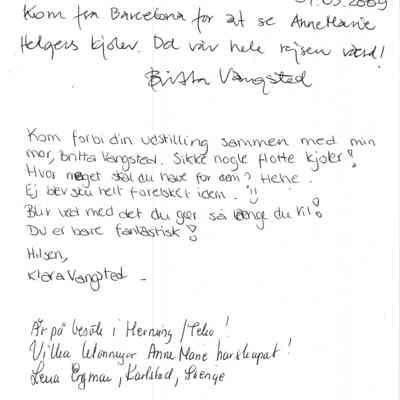 .03.2009
Kom fra Barcelona for at se AnneMarie
Helgers kjoler. Det var hele rejsen værd!
Britta Vangsted
Kom forbi din udstilling sammen med min
mor, Britta Vangsted. Sikke nogle flotte kjoler!
Hvor meget skal du have for dem? Hehe.
Ej blev sku helt forelsket i dem. !!
Bliv ved med det du gør så længe du vil!
Du er bare fantastisk!
Hilsen,
Klara Vangsted -
Är på besök i Herning / Teko!
Vilka klänningar Anne Marie har skapat!
Lena Ergman, Karlstad, Sverige